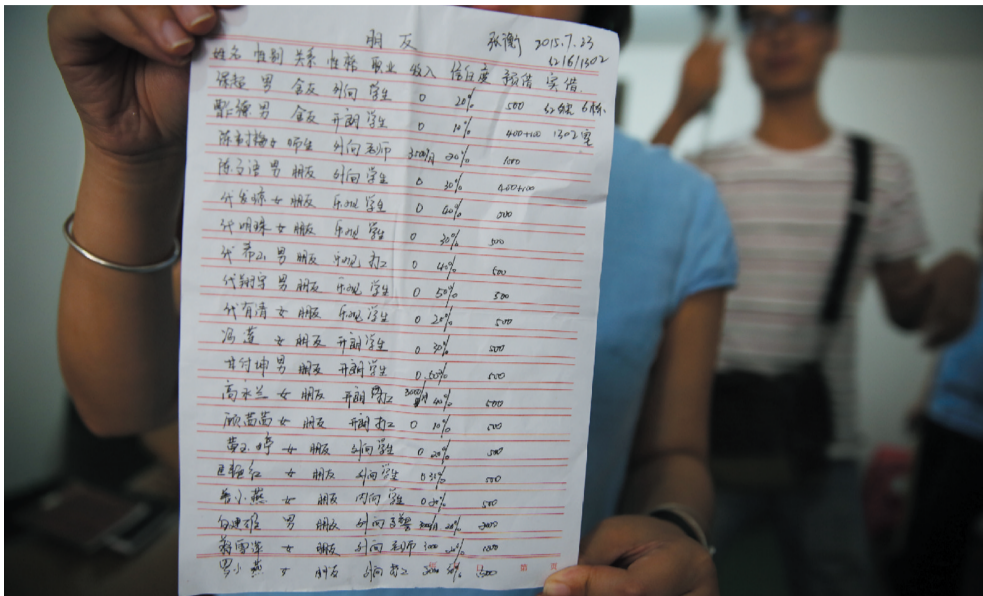 朋友 张衡 2015.7.23
姓名 性别 关系 性格 职业 收入 信任度 预借 实借 S216/1302
谭超 男 舍友 外向 学生 0 20% 500 6栋
男 舍友 开朗 学生 0 10% 400+100 1302室
陈 梅 女 师生 外向 老师 3500/月 20% 1000
陈 男 朋友 外向 学生 0 30% 400+100
代发琼 女 朋友 乐观 学生 0 40% 500
代明珠 女 朋友 乐观 学生 0 30% 500
代希 男 朋友 乐观 打工 0 40% 500
代翔宇 男 朋友 乐观 学生 0 50% 500
代有清 女 朋友 乐观 学生 0 20% 500
冯莲 女 朋友 开朗 学生 0 30% 500
甘付坤 男 朋友 开朗 学生 0 50% 500
高永兰 女 朋友 开朗 打工 3000/月 40% 500
顾苗苗 女 朋友 开朗 打工 0 10% 500
黄玉婷 女 朋友 外向 学生 0 20% 500
红 女 朋友 外向 学生 0 30% 500
小燕 女 朋友 内向 学生 0 20% 500
男 朋友 外向 20% 2000
蒋雨 女 朋友 外向 老师 3000 1000
罗小燕 女 朋友 外向 打工 3000
第 页